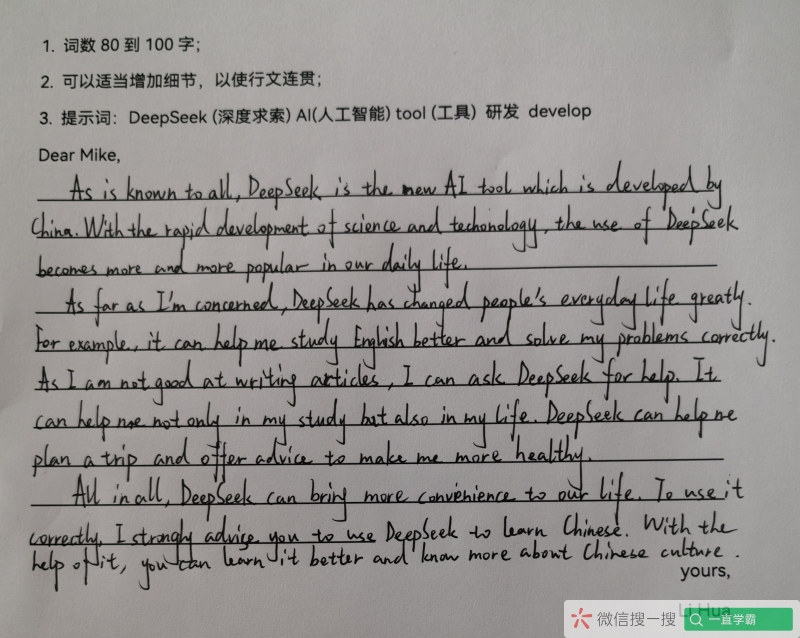 1. 词数 80 到 100 字；
2. 可以适当增加细节，以使行文连贯；
3. 提示词：DeepSeek (深度求索) AI(人工智能) tool (工具) 研发 develop
Dear Mike,
As is known to all, DeepSeek is the new AI tool which is developed by
China. With the rapid development of science and techonology, the use of DeepSeek
becomes more and more popular in our daily life.
As far as I'm concerned, DeepSeek has changed people's everyday life greatly.
For example, it can help me study English better and solve my problems correctly.
As I am not good at writing articles, I can ask DeepSeek for help. It
can help me not only in my study but also in my life. DeepSeek can help me
plan a trip and offer advice to make me more healthy.
All in all, DeepSeek can bring more convenience to our life. To use it
correctly, I strongly advise you to use DeepSeek to learn Chinese. With the
help of it, you can learn it better and know more about Chinese culture.
yours,
Li Hua
微信搜一搜 一直学霸